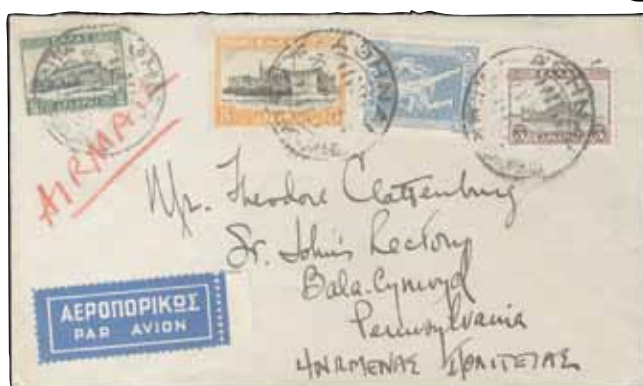 AIRMAIL
Mr. Theodore Clattenburg
St. John's Rectory
Bala-Cynwyd
Pennsylvania
ΗΝΩΜΕΝΑΣ ΠΟΛΙΤΕΙΑΣ
ΑΕΡΟΠΟΡΙΚΩΣ
PAR AVION